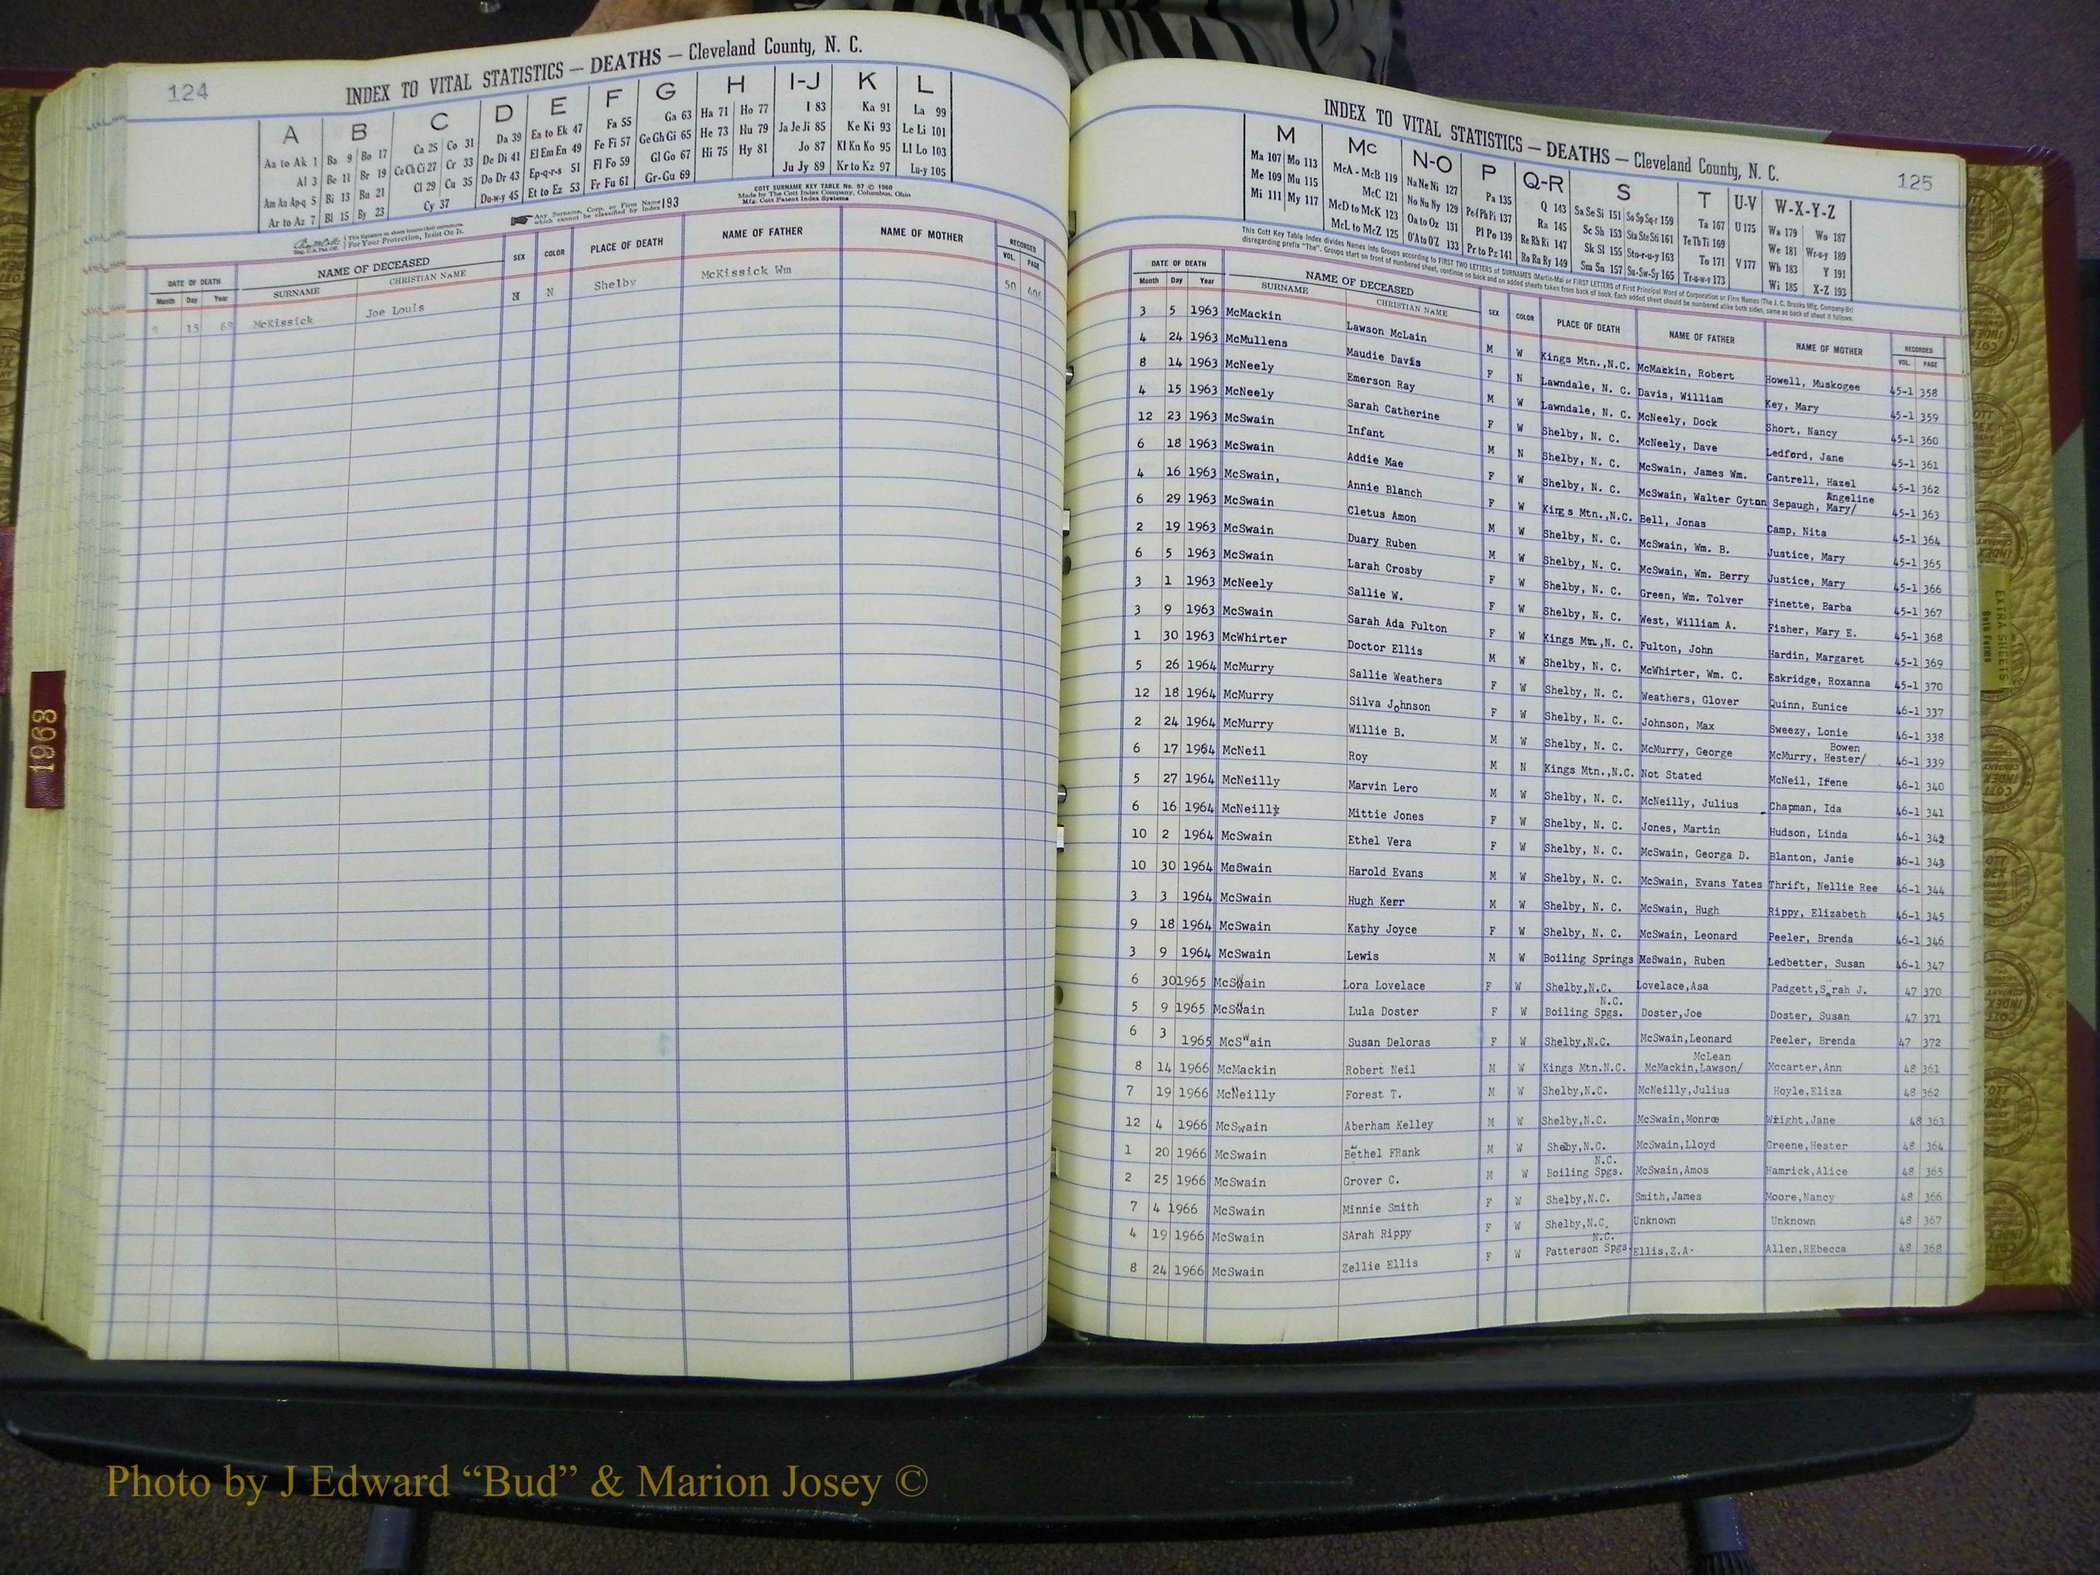 124
INDEX TO VITAL STATISTICS — DEATHS — Cleveland County, N. C.
A B C D E F G H I-J K L
Aa to Ak 1 Ba 9 Bo 17 Ca 25 Co 31 Da 39 Ea to Ek 47 Fa 55 Ga 63 Ha 71 Ho 77 I 83 Ka 91 La 99
Al 3 Be 11 Br 19 Ce Ch Ci 27 Cr 33 De Di 41 El Em En 49 Fe Fi 57 Ge Gh Gi 65 He 73 Hu 79 Ja Je Ji 85 Ke Ki 93 Le Li 101
Am An Ap-q 5 Bi 13 Bu 21 Cl 29 Cu 35 Do Dr 43 Ep-q-r-s 51 Fl Fo 59 Gl Go 67 Hi 75 Hy 81 Jo 87 Kl Kn Ko 95 Ll Lo 103
Ar to Az 7 Bl 15 By 23 Cy 37 Du-w-y 45 Et to Ez 53 Fr Fu 61 Gr-Gu 69 Ju Jy 89 Kr to Kz 97 Lu-y 105
COTT SURNAME KEY TABLE No. 97 © 1960
Made by The Cott Index Company, Columbus, Ohio
Mfg. Cott Patent Index Systems
Any Surname, Corp. or Firm Name which cannot be classified by Index 193
For Your Protection, Insist On It.
DATE OF DEATH NAME OF DECEASED SEX COLOR PLACE OF DEATH NAME OF FATHER NAME OF MOTHER RECORDED
Month Day Year SURNAME CHRISTIAN NAME VOL. PAGE
8 15 68 McKissick Joe Louis M N Shelby McKissick Wm 50 406
1968
INDEX TO VITAL STATISTICS — DEATHS — Cleveland County, N. C.
125
M Mc N-O P Q-R S T U-V W-X-Y-Z
Ma 107 Mo 113 McA - McB 119 Na Ne Ni 127 Pa 135 Q 143 Sa Se Si 151 So Sp Sq-r 159 Ta 167 U 175 Wa 179 Wo 187
Me 109 Mu 115 McC 121 No Nu Ny 129 Pe-f Ph Pi 137 Ra 145 Sc Sh 153 Sta Ste Sti 161 Te Th Ti 169 We 181 Wr-u-y 189
Mi 111 My 117 McD to McK 123 Oa to Oz 131 Pl Po 139 Re Rh Ri 147 Sk Sl 155 Sto-r-u-y 163 To 171 V 177 Wh 183 Y 191
McL to McZ 125 O'A to O'Z 133 Pr to Pz 141 Ro Ru Ry 149 Sm Sn 157 Su-Sw-Sy 165 Tr-u-w-y 173 Wi 185 X-Z 193
This Cott Key Table Index divides Names into Groups according to FIRST TWO LETTERS of SURNAMES (Martin-Ma) or FIRST LETTERS of First Principal Word of Corporation or Firm Names (The J. C. Brooks Mfg. Company-Br)
disregarding prefix "The". Groups start on front of numbered sheet, continue on back and on added sheets taken from back of book. Each added sheet should be numbered alike both sides, same as back of sheet it follows.
DATE OF DEATH NAME OF DECEASED SEX COLOR PLACE OF DEATH NAME OF FATHER NAME OF MOTHER RECORDED
Month Day Year SURNAME CHRISTIAN NAME VOL. PAGE
3 5 1963 McMackin Lawson McLain M W Kings Mtn.,N.C. McMackin, Robert Howell, Muskogee 45-1 358
4 24 1963 McMullens Maudie Davis F N Lawndale, N. C. Davis, William Key, Mary 45-1 359
8 14 1963 McNeely Emerson Ray M W Lawndale, N. C. McNeely, Dock Short, Nancy 45-1 360
4 15 1963 McNeely Sarah Catherine F W Shelby, N. C. McNeely, Dave Ledford, Jane 45-1 361
12 23 1963 McSwain Infant M N Shelby, N. C. McSwain, James Wm. Cantrell, Hazel 45-1 362
6 18 1963 McSwain Addie Mae F W Shelby, N. C. McSwain, Walter Gyton Sepaugh, Mary/ Angeline 45-1 363
4 16 1963 McSwain, Annie Blanch F W Kings Mtn.,N.C. Bell, Jonas Camp, Nita 45-1 364
6 29 1963 McSwain Cletus Amon M W Shelby, N. C. McSwain, Wm. B. Justice, Mary 45-1 365
2 19 1963 McSwain Duary Ruben M W Shelby, N. C. McSwain, Wm. Berry Justice, Mary 45-1 366
6 5 1963 McSwain Larah Crosby F W Shelby, N. C. Green, Wm. Tolver Finette, Barba 45-1 367
3 1 1963 McNeely Sallie W. F W Shelby, N. C. West, William A. Fisher, Mary E. 45-1 368
3 9 1963 McSwain Sarah Ada Fulton F W Kings Mtn.,N. C. Fulton, John Hardin, Margaret 45-1 369
1 30 1963 McWhirter Doctor Ellis M W Shelby, N. C. McWhirter, Wm. C. Eskridge, Roxanna 45-1 370
5 26 1964 McMurry Sallie Weathers F W Shelby, N. C. Weathers, Glover Quinn, Eunice 46-1 337
12 18 1964 McMurry Silva Johnson F W Shelby, N. C. Johnson, Max Sweezy, Lonie 46-1 338
2 24 1964 McMurry Willie B. M W Shelby, N. C. McMurry, George McMurry, Hester/ Bowen 46-1 339
6 17 1964 McNeil Roy M N Kings Mtn.,N.C. Not Stated McNeil, Irene 46-1 340
5 27 1964 McNeilly Marvin Lero M W Shelby, N. C. McNeilly, Julius Chapman, Ida 46-1 341
6 16 1964 McNeilly Mittie Jones F W Shelby, N. C. Jones, Martin Hudson, Linda 46-1 342
10 2 1964 McSwain Ethel Vera F W Shelby, N. C. McSwain, Georga D. Blanton, Janie 46-1 343
10 30 1964 McSwain Harold Evans M W Shelby, N. C. McSwain, Evans Yates Thrift, Nellie Ree 46-1 344
3 3 1964 McSwain Hugh Kerr M W Shelby, N. C. McSwain, Hugh Rippy, Elizabeth 46-1 345
9 18 1964 McSwain Kathy Joyce F W Shelby, N. C. McSwain, Leonard Peeler, Brenda 46-1 346
3 9 1964 McSwain Lewis M W Boiling Springs McSwain, Ruben Ledbetter, Susan 46-1 347
6 30 1965 McSwain Lora Lovelace F W Shelby,N.C. Lovelace,Asa Padgett,Sarah J. 47 370
5 9 1965 McSwain Lula Doster F W Boiling Spgs. N.C. Doster,Joe Doster, Susan 47 371
6 3 1965 McSwain Susan Deloras F W Shelby,N.C. McSwain,Leonard Peeler, Brenda 47 372
8 14 1966 McMackin Robert Neil M W Kings Mtn.N.C. McMackin,Lawson/ McLean Mccarter,Ann 48 361
7 19 1966 McNeilly Forest T. M W Shelby,N.C. McNeilly,Julius Hoyle,Eliza 48 362
12 4 1966 McSwain Aberham Kelley M W Shelby,N.C. McSwain,Monroe Wright,Jane 48 363
1 20 1966 McSwain Bethel FRank M W Shelby,N.C. McSwain,Lloyd Greene,Hester 48 364
2 25 1966 McSwain Grover C. M W Boiling Spgs. N.C. McSwain,Amos Hamrick,Alice 48 365
7 4 1966 McSwain Minnie Smith F W Shelby,N.C. Smith,James Moore,Nancy 48 366
4 19 1966 McSwain SArah Rippy F W Shelby,N.C. Unknown Unknown 48 367
8 24 1966 McSwain Zellie Ellis F W Patterson Spgs. N.C. Ellis,Z.A. Allen,REbecca 48 368
EXTRA SHEETS
Photo by J Edward “Bud” & Marion Josey ©